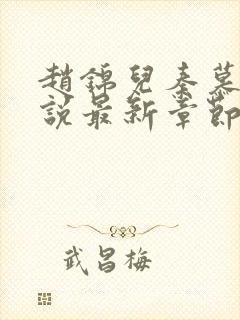 趙錦兒秦慕
說最新章節
武昌梅